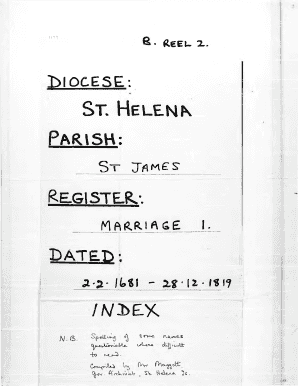 B. REEL 2.
DIOCESE:
ST. HELENA
PARISH:
ST JAMES
REGISTER:
MARRIAGE 1.
DATED:
2.2.1681 – 28.12.1819
INDEX
N.B. Spelling of some names
questionable where difficult
to read.
Compiled by Mr
for Archives, St Helena Is.